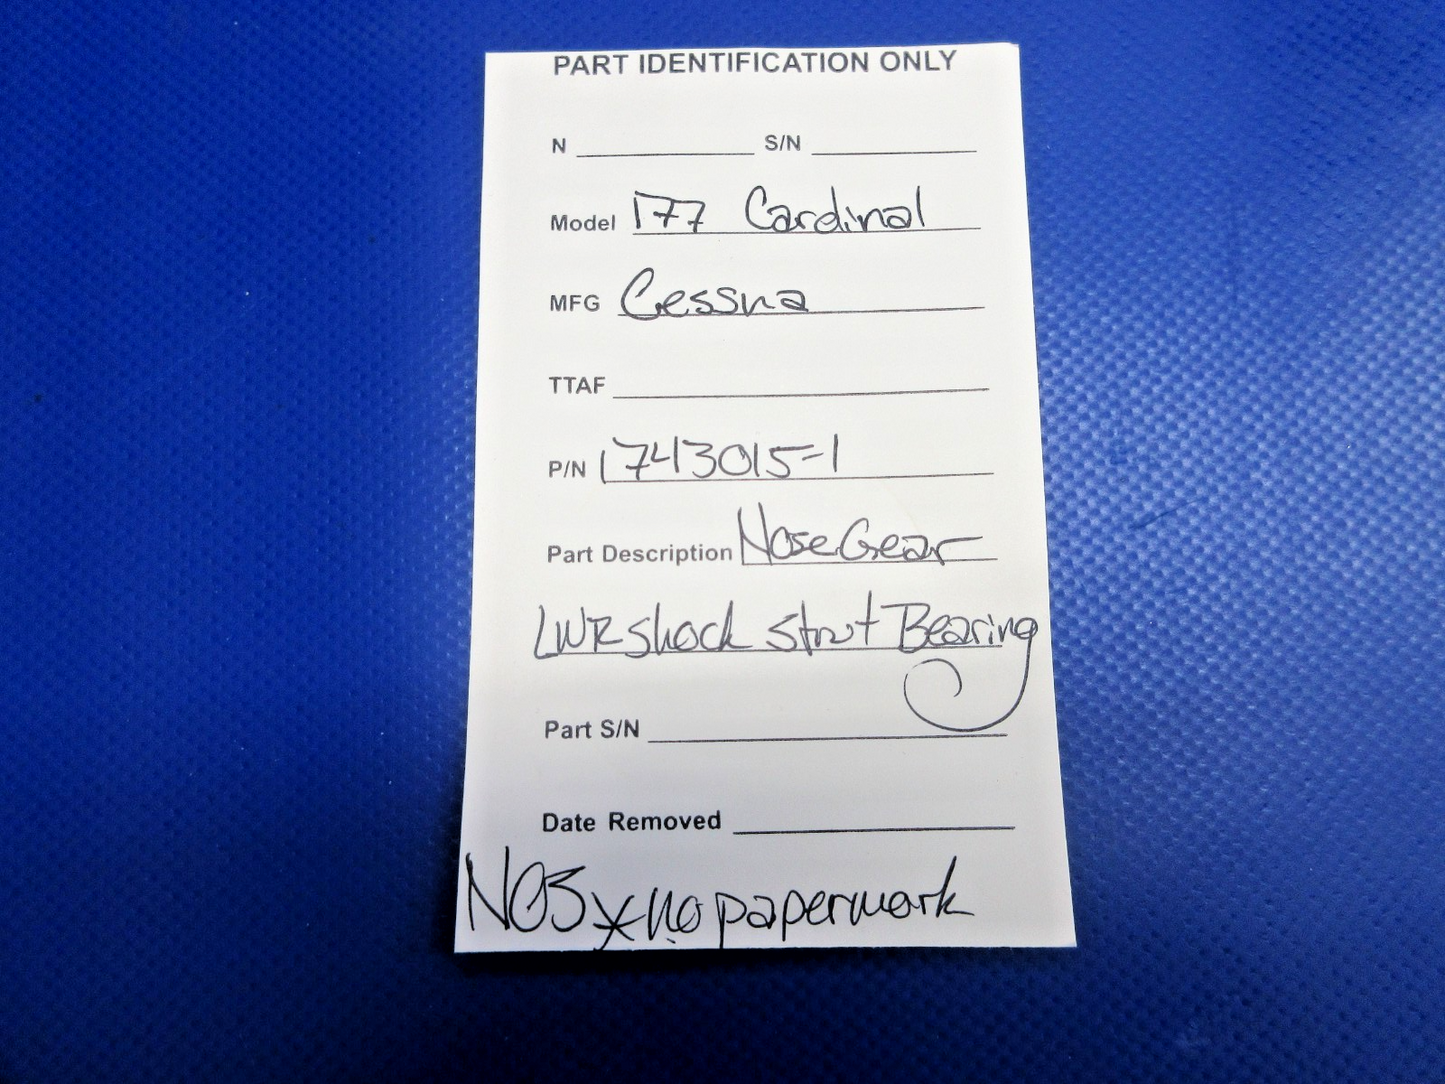 PART IDENTIFICATION ONLY
N S/N
Model 177 Cardinal
MFG Cessna
TTAF
P/N 1743015-1
Part Description Nose Gear
LWR Shock Strut Bearing
Part S/N
Date Removed
NOS * no paperwork